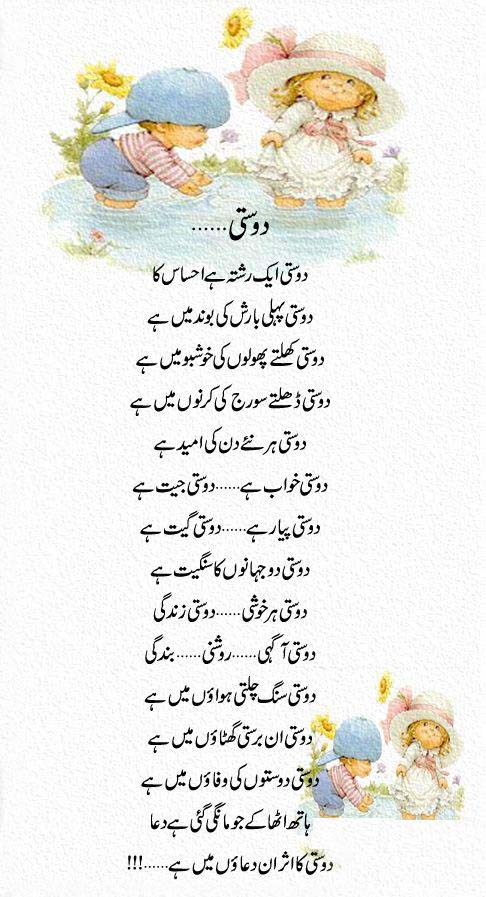 دوستی......
دوستی ایک رشتہ ہے احساس کا
دوستی پہلی بارش کی بوند میں ہے
دوستی کھلتے پھولوں کی خوشبو میں ہے
دوستی ڈھلتے سورج کی کرنوں میں ہے
دوستی ہر نئے دن کی امید ہے
دوستی خواب ہے......دوستی جیت ہے
دوستی پیار ہے......دوستی گیت ہے
دوستی دو جہانوں کا سنگیت ہے
دوستی ہر خوشی......دوستی زندگی
دوستی آگہی......روشنی......بندگی
دوستی سنگ چلتی ہواؤں میں ہے
دوستی ان برستی گھٹاؤں میں ہے
دوستی دوستوں کی وفاؤں میں ہے
ہاتھ اٹھا کے جو مانگی گئی ہے دعا
دوستی کا اثر ان دعاؤں میں ہے......!!!